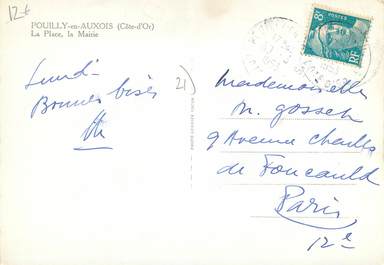 12 €
POUILLY-en-AUXOIS (Côte-d'Or)
La Place, la Mairie
Lundi
Bonnes bises
21
8F
POSTES
RF
Mademoiselle
M. Gosset
9 Avenue Charles
de Foucauld
Paris
12e